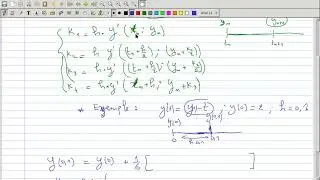 k₁ = h.y' (t_n ; y_n)
k₂ = h.y' ((t_n + h/2) ; (y_n + k₁/2))
k₃ = h.y' ((t_n + h/2) ; (y_n + k₂/2))
k₄ = h.y' (t_n + h ; y_n + k₃)
y_n y_{n+1}
t_n t_{n+1}
* Exemple : y'(t) = y - t ; y(0) = 2 , h = 0,1
y(0) y(0,1)
0 h=0,1 0,1
y(0,1) = y(0) + 1/6 [